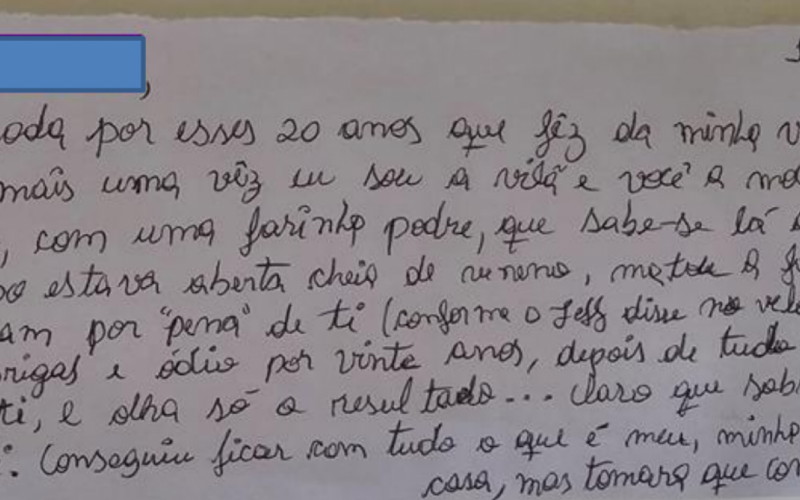 ,
oda por esses 20 anos que fêz da minha v
mais uma vêz eu sou a vilã e você a mo
, com uma farinha podre, que sabe-se lá
o estava aberta cheia de veneno, matou a f
am por "pena" de ti (conforme o Jeff disse no velo
rigas e ódio por vinte anos, depois de tudo
ti, e olha só o resultado... Claro que sab
: Conseguiu ficar com tudo o que é meu, minha
casa, mas tomara que con